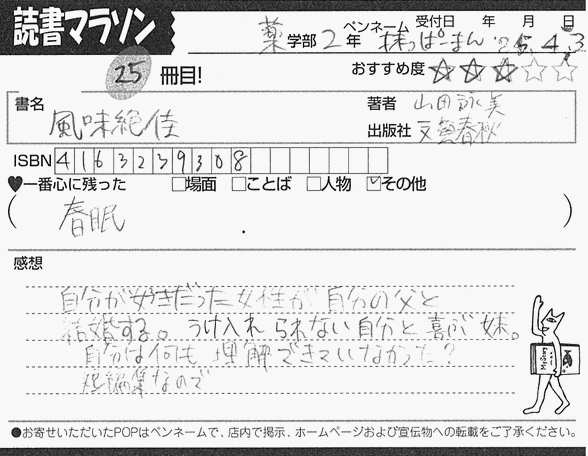 読書マラソン
薬学部2年 ペンネーム 抹っぱーまん 受付日 '05年 4月 3日
25冊目! おすすめ度 ★★★☆☆
書名 風味絶佳
著者 山田詠美
出版社 文藝春秋
ISBN 4163239308
♥一番心に残った □場面 □ことば □人物 ☑その他
( 春眠 )
感想
自分が好きだった女性が自分の父と
結婚する。うけ入れられない自分と喜ぶ妹。
自分は何も理解できていなかった?
短編集なので
●お寄せいただいたPOPはペンネームで、店内で掲示、ホームページおよび宣伝物への転載をご了承ください。